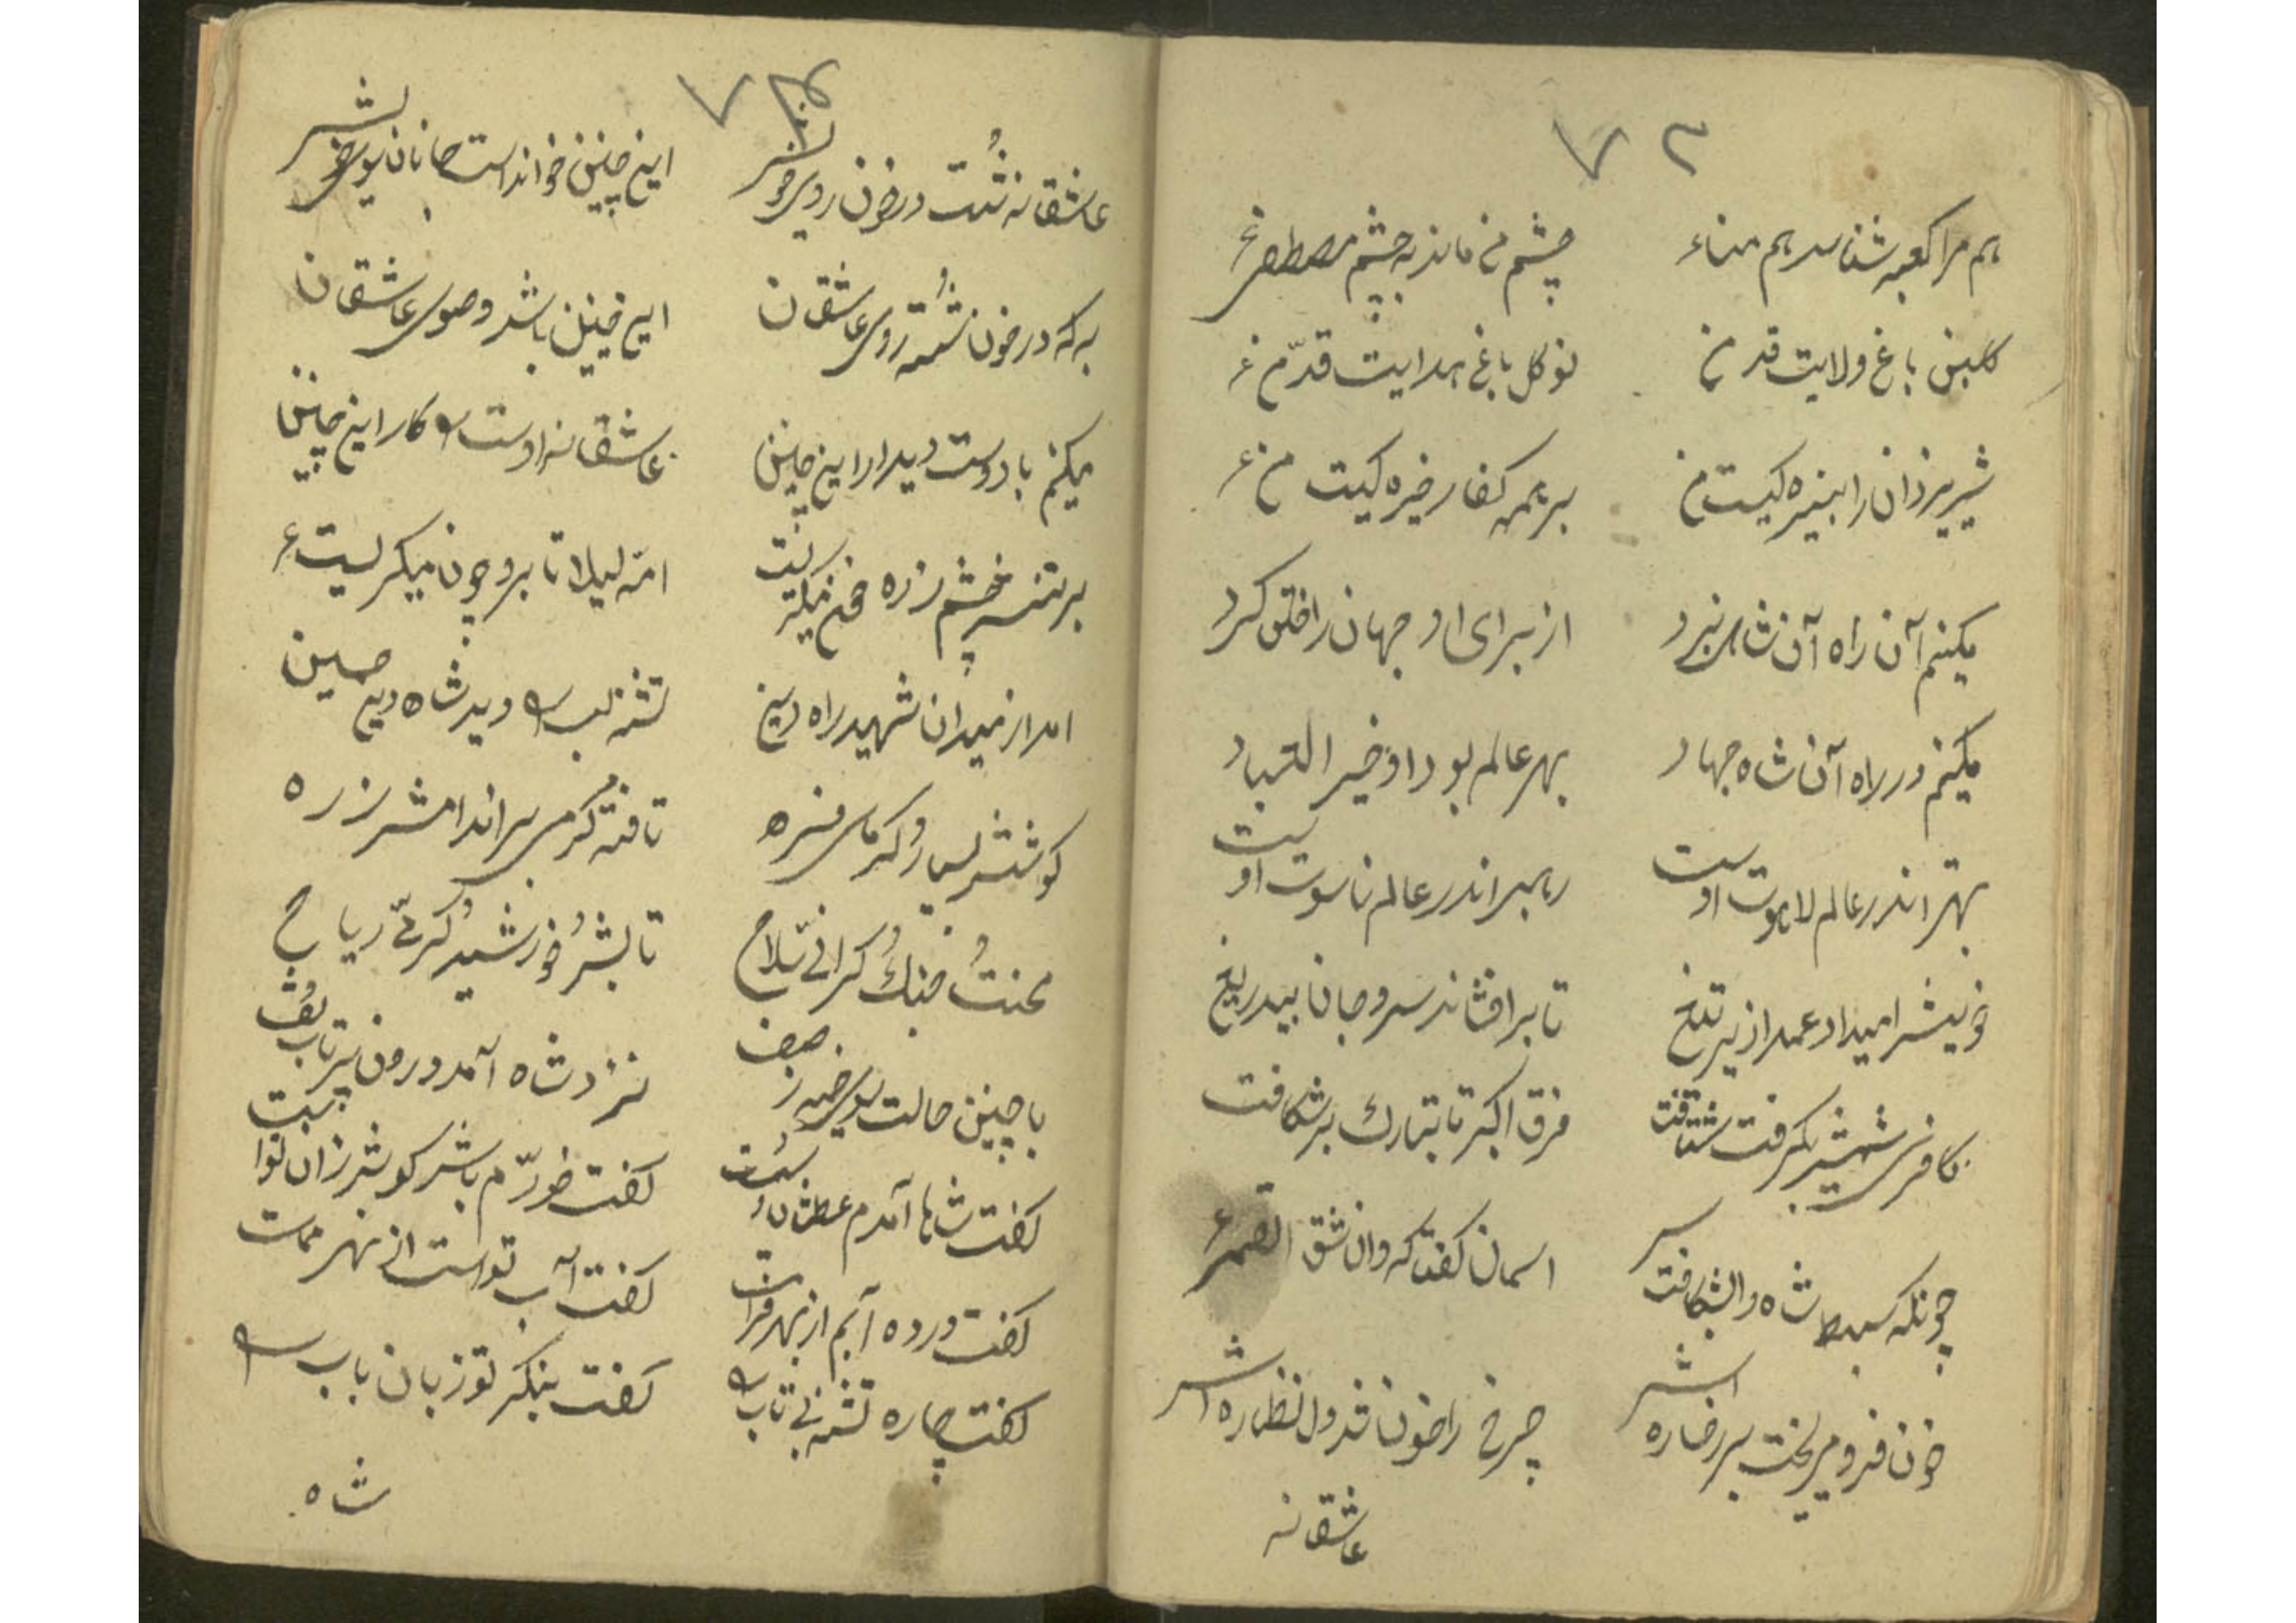 ۷۲
هم مرا کعبه شناسد هم مناء
چشم من ماند به چشم مصطفی
کلبن باغ ولایت قد من
نوکل باغ هدایت قدّ من
شیر یزدان را بنیره کیست من
بر همه کفار خیره کیست من
میکنم آن راه آن شاه نبرد
از برای او جهان را خلق کرد
میکنم در راه آن شاه جهاد
بهر عالم بود او خیر العباد
بهتر اندر عالم لاهوت اوست
رهبر اندر عالم ناسوت اوست
خویش را میداد عمدا زیر تیغ
تا بر افشاند سر و جان بیدریغ
کافری شمشیر بکرفت شتافت
فرق اکبر تا بتارک بر شکافت
چونکه سبط شاه را بشکافت سر
اسمان کفتا که وانشق القمر
خون فرو میریخت بر رخساره اش
چرخ را خون شد دل نظاره اش
عاشقانه
۷۳
عاشقانه شُست در خون روی خویش
این چنین خواند است جانان سوی خویش
به که در خون شُسته روی عاشقان
این چنین باشد وضوی عاشقان
میکنم با دوست دیدار این چنین
عاشقانرا اوست کار این چنین
بر تنش چشم زره خون میکریست
امّ لیلا تا برو چون میکریست
امد از میدان شهید راه دین
تشنه لب دید شاه دین حسین
کوششِ بسیار و کرمای
تافته کرمی بر اندامش زره
محنتُ جنكُ کرانیّ سلاح
تابشُ خورشیدُ کرمیّ ریاح
با چنین حالت بسوی خیمه ز صف
نزد شاه آمد درون پرتاب تُف
کفت شاها آمدم عطشان
کفت خورّم باش کوثر زان تو است
کفت در ده آبم از نهر فرات
کفت آب تو است از نهر ممات
کفت چاره تشنه بی تاب
کفت بنکر تو زبان باب
شاه